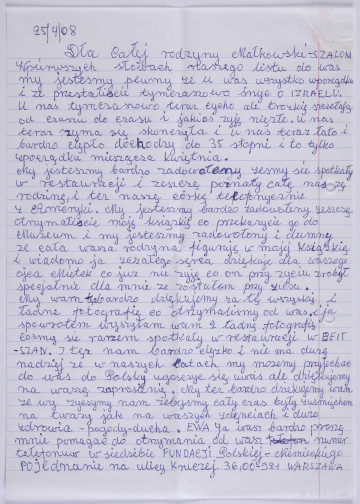 25/4/08
Dla Całej rodzyny Małkowski-SZALOM
Wpierwszych słowach naszego listu do was
my jestesmy pewny że u was wszystko wporządku
i że przestaliście tymerazowo śnego o IZRAELU.
U nas tymerazowo teraz cycho ale trochię szczelają
od czasu do czasu i jakoś żyją nieżle. U nas
teraz zyma się skonczyła i u nas teraz lato i
bardzo ciepło dochodzy do 35 stopni i to tylko
wpocządku mieszącza kwietnia.
My jestesmy bardzo zadowoleny żesmy się spotkały
w restauracji i żeszcze poznały całą naszą
rodzinę i też naszą córkę telefonycznie
z Ameryki. My jestesmy bardzo zadowoleny żeszcze
otrzymaliscie moją książkę co przekarzycie go do
Muzeum i my jestesmy zadowolony i dumne
że cała wasza rodzyna figuruje w mojej Książkie
i wiadomo ja zcałego serca dziękuje dla waszego
ojca Mietek co już nie żyje co on przy życiu zrobył
specjalnie dla mnie że zostałem przy żciu.
My wam bardzo dziękujemy za tę wszyskie
ładne fotografię co otrzymaliśmy od was, i ja
spowrotem wysyłam wam 2 ładny fotografię
cośmy się razem spotkały w restauracji w BEIT-
SZAN. I też nam bardzo cięzko i nie ma dużo
nadziej że w naszych latach my możemy przyjechać
do was do Polsky ugościcze się uwas ale dziękujemy
na waszą zaproszenie, My też bardzo dziękujemy wam
że wy życzysmy nam żebysmy cały czas były zusmięchem
na twarzy jak na waszych zdjęciach i dużo
zdrowia - pogody - ducha. EWA Ja was bardzo proszą
mnie pomagać do otrzymania od was numer
telefonuw w siedzibie FUNDACJI Polskiej-Niemieckiego
POJednanie na ulicy Kruczej 36,00-921 WARSZAWA